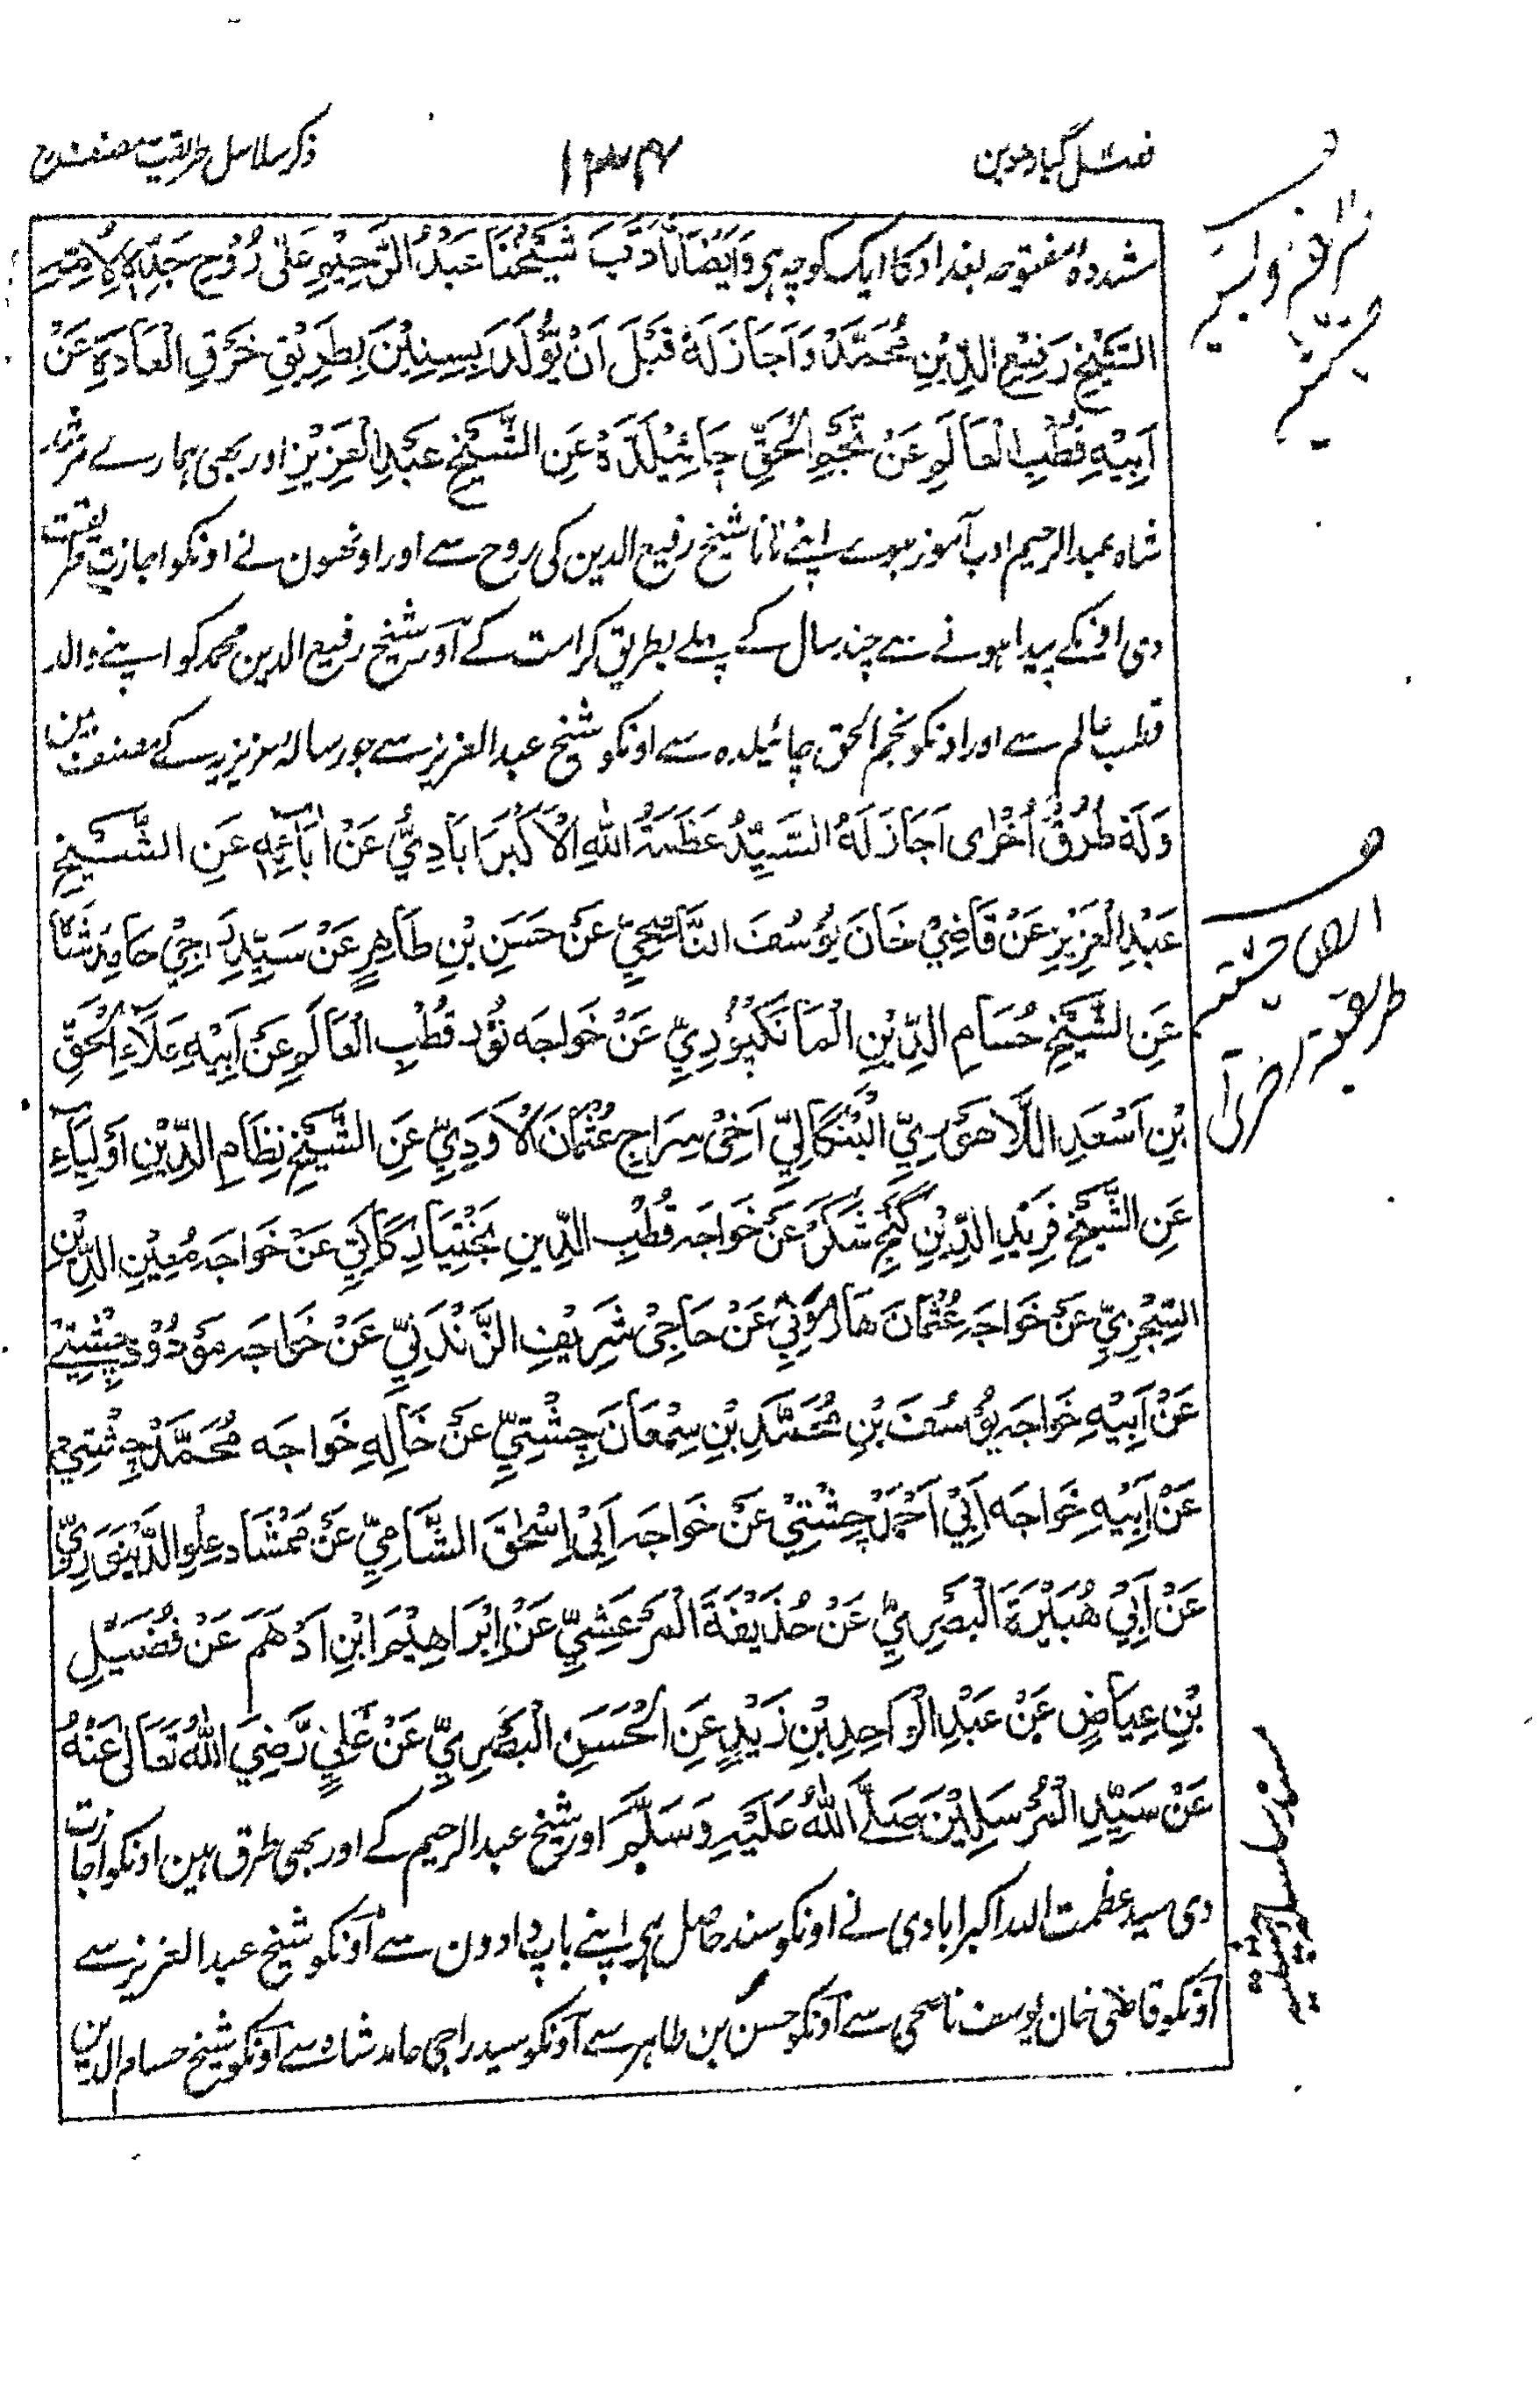 فصل گیارھوین
۱۳۴
ذکر سلاسل طریقیت مصنف
مشددہ مفتوحہ بغداد کا ایک کوچہ ہی وَاَیْضًا تَاَدَّبَ شَیْخُنَا عَبْدُ الرَّحِیْمِ عَلٰی رُوْحِ جَدِّہٖ لِاُمِّہٖ
الشَّیْخِ رَفِیْعِ الدِّیْنِ مُحَمَّدٍ وَاَجَازَ لَهٗ قَبْلَ اَنْ یُّوْلَدَ بِسِنِیْنَ بِطَرِیْقِ خَرْقِ الْعَادَةِ عَنْ
اَبِیْهِ قُطْبِ الْعَالَمِ عَنْ نَجْمِ الْحَقِّ چَائِیْلَدَہْ عَنِ الشَّیْخِ عَبْدِ الْعَزِیْزِ اور بھی ہمارے مرشد
شاہ عبد الرحیم ادب آموز ہوے اپنے نانا شیخ رفیع الدین کی روح سے اور اونھون نے اونکو اجازت طریقت
دی اونکے پیدا ہونے سے چند سال کے پہلے بطریق کرامت کے اور شیخ رفیع الدین محمد کو اپنے والد
قطب عالم سے اور اونکو نجم الحق چائیلدہ سے اونکو شیخ عبد العزیز سے جو رسالہ عزیزیہ کے مصنف ہین
وَلَهٗ طُرُقٌ اُخْرٰی اَجَازَ لَهُ السَّیِّدُ عَظَمَةُ اللّٰهِ الْاَکْبَرَابَادِیُّ عَنْ اٰبَائِهٖ عَنِ الشَّیْخِ
عَبْدِ الْعَزِیْزِ عَنْ قَاضِیْ خَانَ یُوْسُفَ النَّاصِحِیِّ عَنْ حَسَنِ بْنِ طَاهِرٍ عَنْ سَیِّدِ رَاجِیْ حَامِدْ شَاہْ
عَنِ الشَّیْخِ حُسَامِ الدِّیْنِ الْمَانَکْپُوْرِیِّ عَنْ خَواجَه نُوْرِ قُطْبِ الْعَالَمِ عَنْ اَبِیْهِ عَلَاءِ الْحَقِّ
بْنِ اَسْعَدِ اللَّاهَوْرِیِّ الْبَنْگَالِیِّ اَخِیْ سِرَاجِ عُثْمَانَ الْاَوَدِیِّ عَنِ الشَّیْخِ نِظَامِ الدِّیْنِ اَوْلِیَاءِ
عَنِ الشَّیْخِ فَرِیْدِ الدِّیْنِ گَنْجِ شَکَرْ عَنْ خَواجَه قُطْبِ الدِّیْنِ بَخْتِیَارِ کَاکِیِّ عَنْ خَواجَه مُعِیْنِ الدِّیْنِ
السِّجْزِیِّ عَنْ خَواجَه عُثْمَانَ هَارُوْنِیِّ عَنْ حَاجِیْ شَرِیْفِ الزَّنْدَنِیِّ عَنْ خَواجَه مَوْدُوْدْ چِشْتِیْ
عَنْ اَبِیْهِ خَواجَه یُوْسُفَ بْنِ مُحَمَّدِ بْنِ سِمْعَانَ چِشْتِیِّ عَنْ خَالِهٖ خَواجَه مُحَمَّدْ چِشْتِیْ
عَنْ اَبِیْهِ خَواجَه اَبِیْ اَحْمَدْ چِشْتِیْ عَنْ خَواجَه اَبِیْ اِسْحٰقَ الشَّامِیِّ عَنْ مَمْشَادْ عِلْوِ الدِّیْنَوَرِیِّ
عَنْ اَبِیْ هُبَیْرَةَ الْبَصْرِیِّ عَنْ حُذَیْفَةَ الْمَرْعَشِیِّ عَنْ اِبْرَاهِیْمَ ابْنِ اَدْهَمَ عَنْ فُضَیْلِ
بْنِ عِیَاضٍ عَنْ عَبْدِ الْوَاحِدِ بْنِ زَیْدٍ عَنِ الْحَسَنِ الْبَصْرِیِّ عَنْ عَلِیٍّ رَّضِیَ اللّٰهُ تَعَالٰی عَنْهُ
عَنْ سَیِّدِ الْمُرْسَلِیْنَ صَلَّی اللّٰهُ عَلَیْهِ وَسَلَّمَ اور شیخ عبد الرحیم کے اور بھی طرق ہین اونکو اجازت
دی سید عظمت اللہ اکبرابادی نے اونکو سند حاصل ہی اپنے باپ دادون سے اونکو شیخ عبد العزیز سے
اونکو قاضی خان یوسف ناصحی سے اونکو حسن بن طاہر سے اونکو سید راجی حامد شاہ سے اونکو شیخ حسام الدین
طریقہ اخری
سند سلسلہ چشتیہ